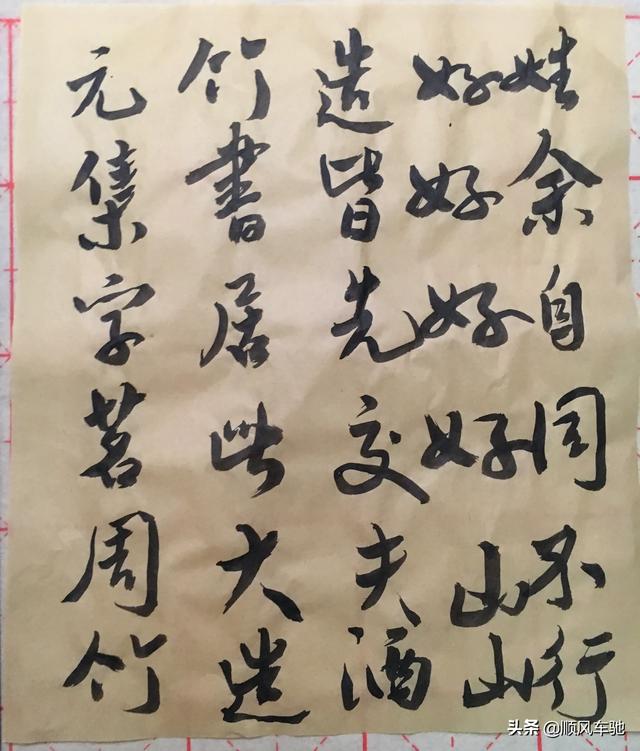 姓余自同不行
好好好好山山
造皆先交夫酒
竹書居此大造
元集字茗周竹
头条 @顺风车驰